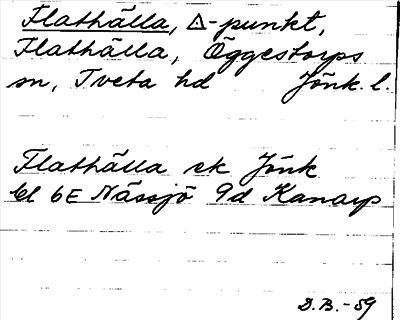 Flathälla, △-punkt,
Flathälla, Öggestorps
sn, Tveta hd Jönk. l.
Flathälla ek Jönk
bl 6E Nässjö 9d Kanarp
D.B.-59